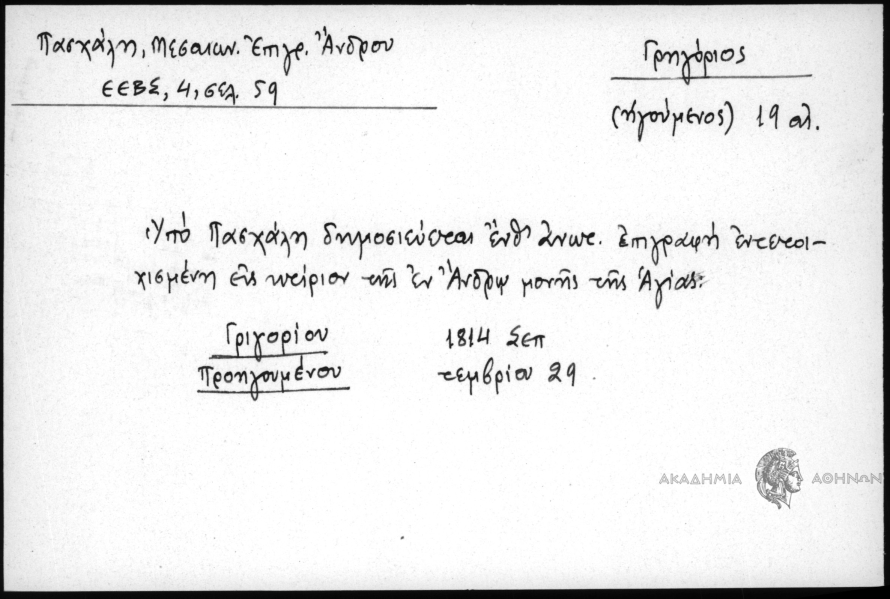 Πασχάλη, Μεσαιων. Ἐπιγρ. Ἄνδρου
ΕΕΒΣ, 4, σελ. 59
Γρηγόριος
(ἡγούμενος) 19 αἰ.
Ὑπό Πασχάλη δημοσιεύεται ἔνθ' ἀνωτ. ἐπιγραφή ἐντετοι-
χισμένη εἰς κτίριον τῆς ἐν Ἄνδρῳ μονῆς τῆς Ἁγίας:
Γριγορίου 1814 Σεπ
Προηγουμένου τεμβρίου 29.
ΑΚΑΔΗΜΙΑ ΑΘΗΝΩΝ